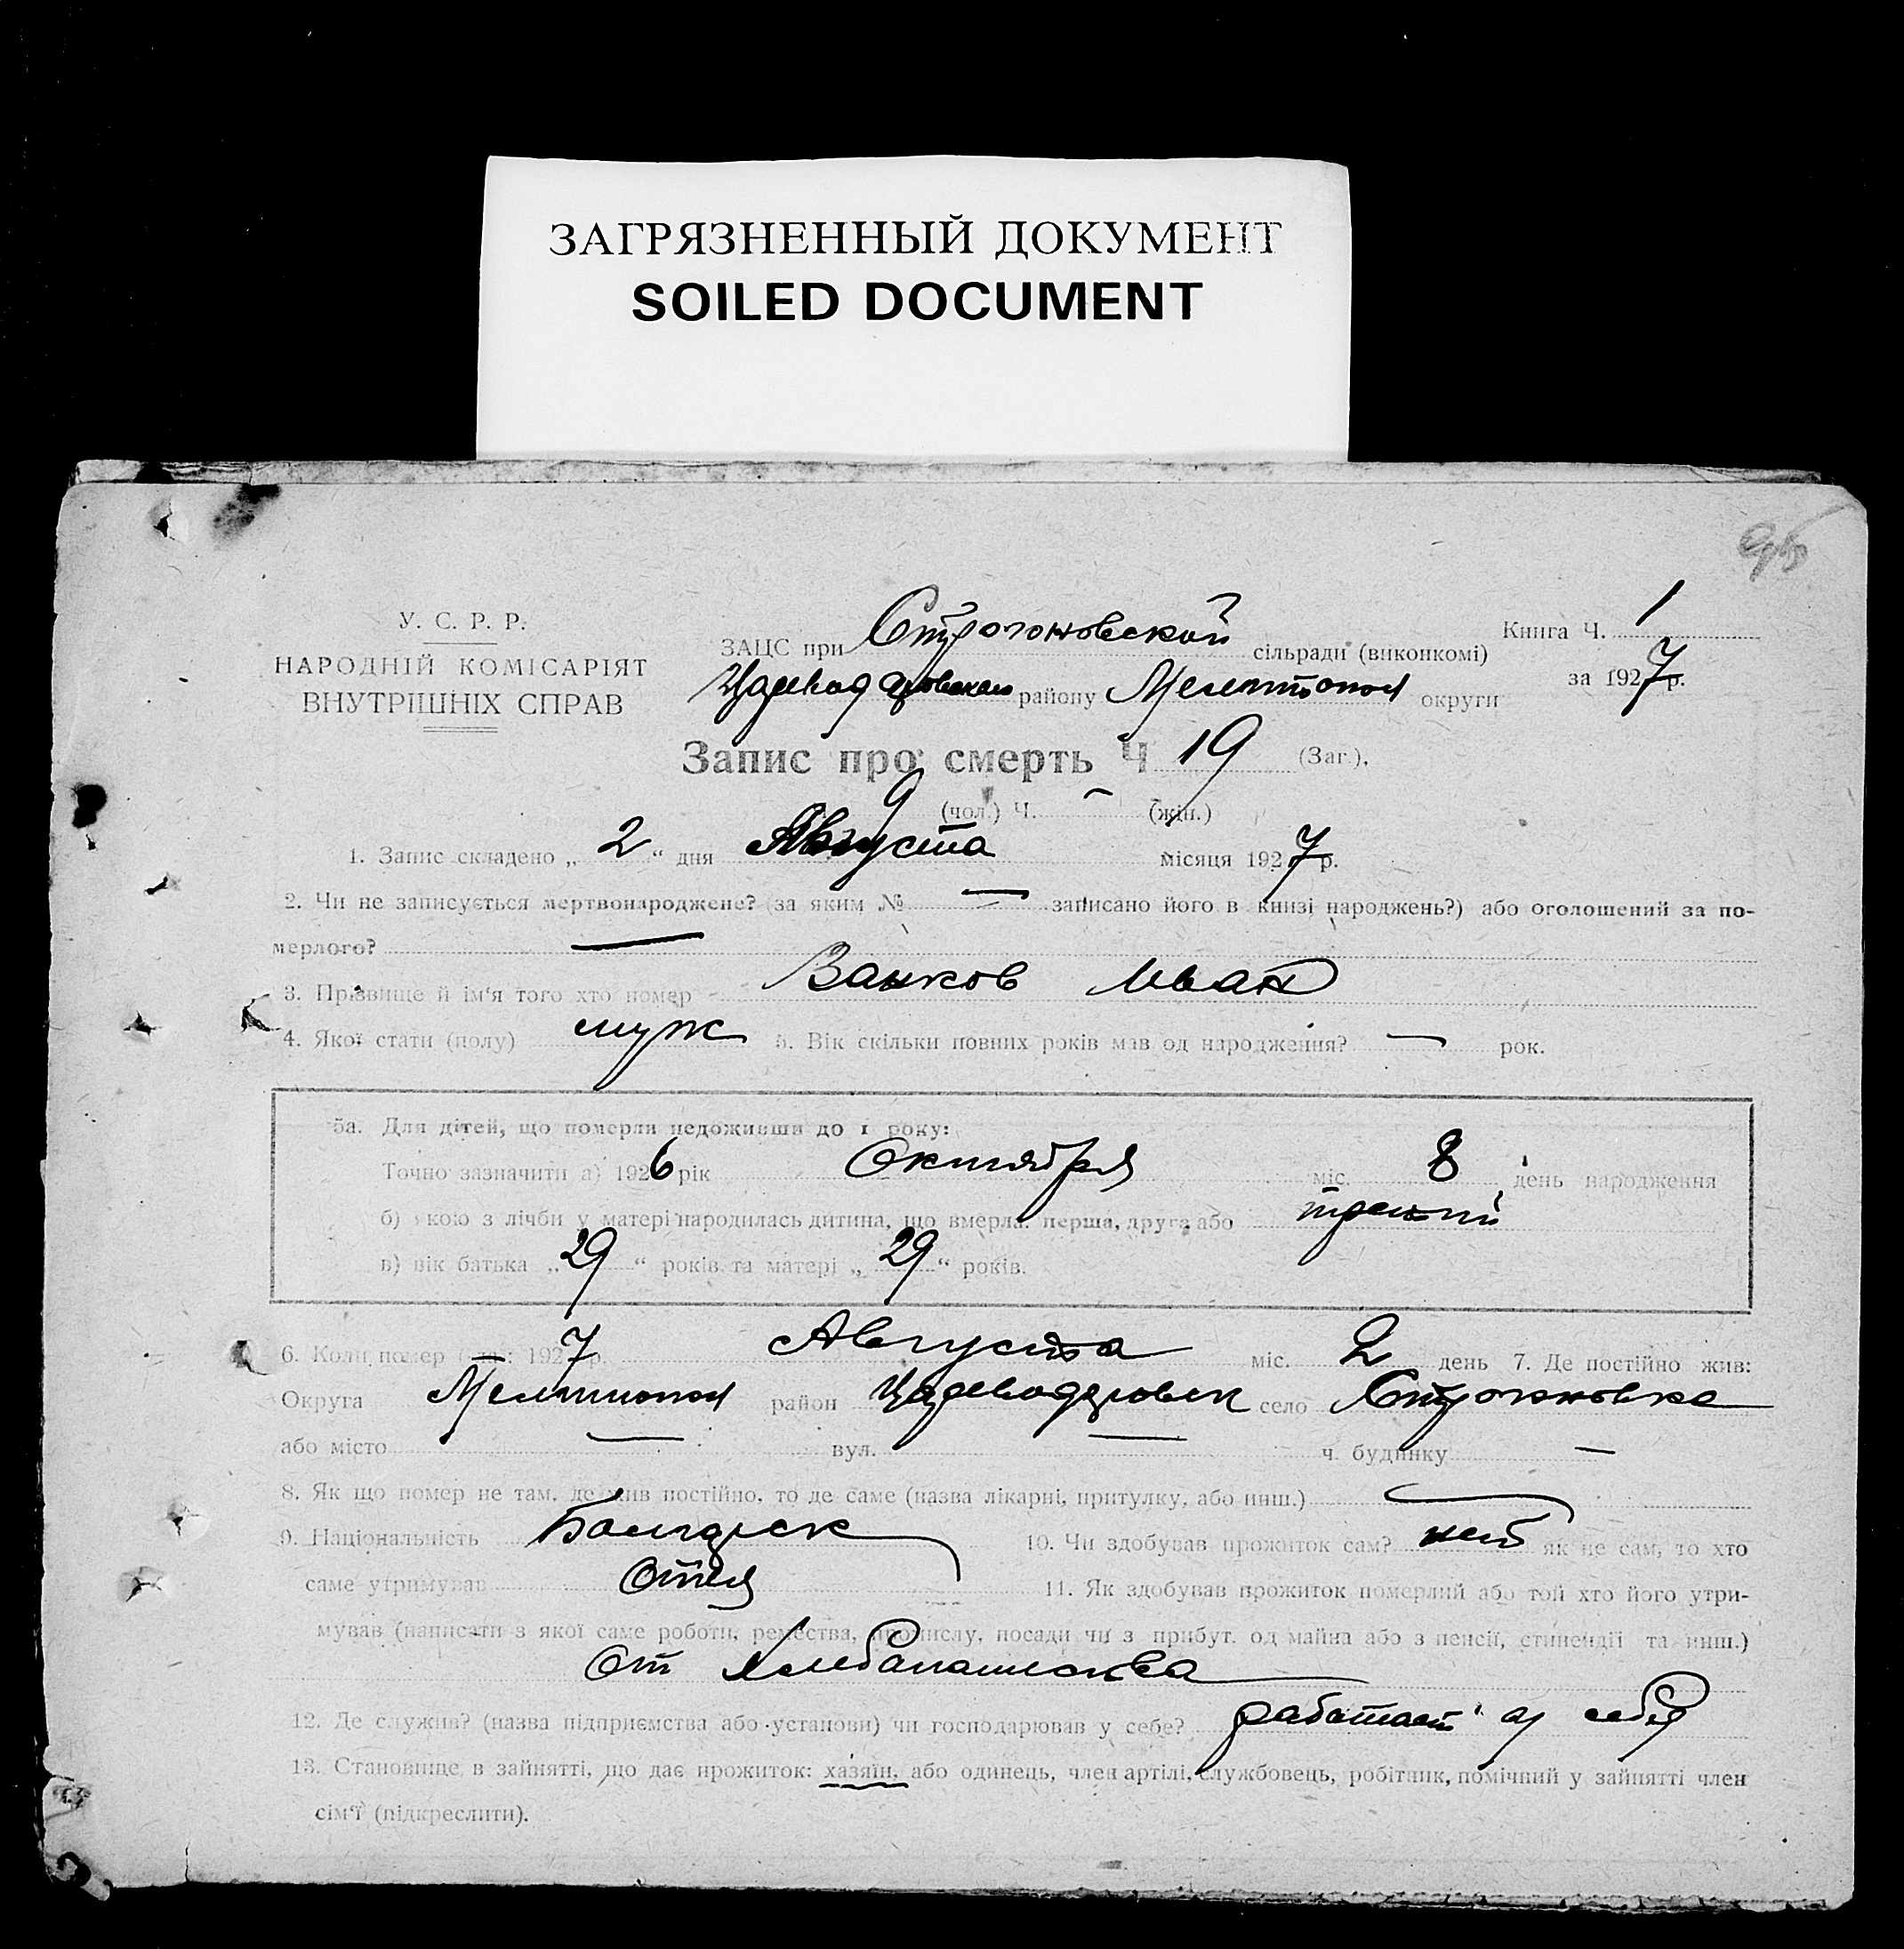 ЗАГРЯЗНЕННЫЙ ДОКУМЕНТ
SOILED DOCUMENT
95
У. С. Р. Р.
НАРОДНІЙ КОМІСАРІЯТ
ВНУТРІШНІХ СПРАВ
ЗАЦС при Строгоновской сільради (виконкомі)
району Мелитопол округи
Книга Ч. 1
за 1927 р.
Запис про смерть Ч 19 (Заг.),
9 (чол.) Ч. – (жін.)
1. Запис складено „ 2 “ дня Августа місяця 1927 р.
2. Чи не записується мертвонароджене? (за яким № — записано його в книзі народжень?) або оголошений за по-
мерлого? —
3. Прізвище й ім'я того хто помер Ванков Иван
4. Якої стати (полу) муж 5. Вік скільки повних років мав од народження? — рок.
5а. Для дітей, що померли недоживши до 1 року:
Точно зазначити а) 1926 рік Октября міс. 8 день народження
б) якою з лічби у матері народилась дитина, що вмерла: перша, друга або третий
в) вік батька „ 29 “ років та матері „ 29 “ років.
6. Коли помер 1927 р. Августа міс. 2 день 7. Де постійно жив:
Округа Мелитопол район Цареводаровск село Строгоновка
або місто — вул. — ч. будинку —
8. Як що помер не там, де жив постійно, то де саме (назва лікарні, притулку, або инш.) —
9. Національність Болгарск 10. Чи здобував прожиток сам? нет як не сам, то хто
саме утримував Отец 11. Як здобував прожиток померлий або той хто його утри-
мував (написати з якої саме роботи, ремества, промислу, посади чи з прибут. од майна або з пенсії, стипендії та инш.)
От Хлебопашества
12. Де служив? (назва підприємства або установи) чи господарював у себе? работает у себя
13. Становище в зайнятті, що дає прожиток: хазяїн, або одинець, член артілі, службовець, робітник, помічний у зайнятті член
сім'ї (підкреслити).